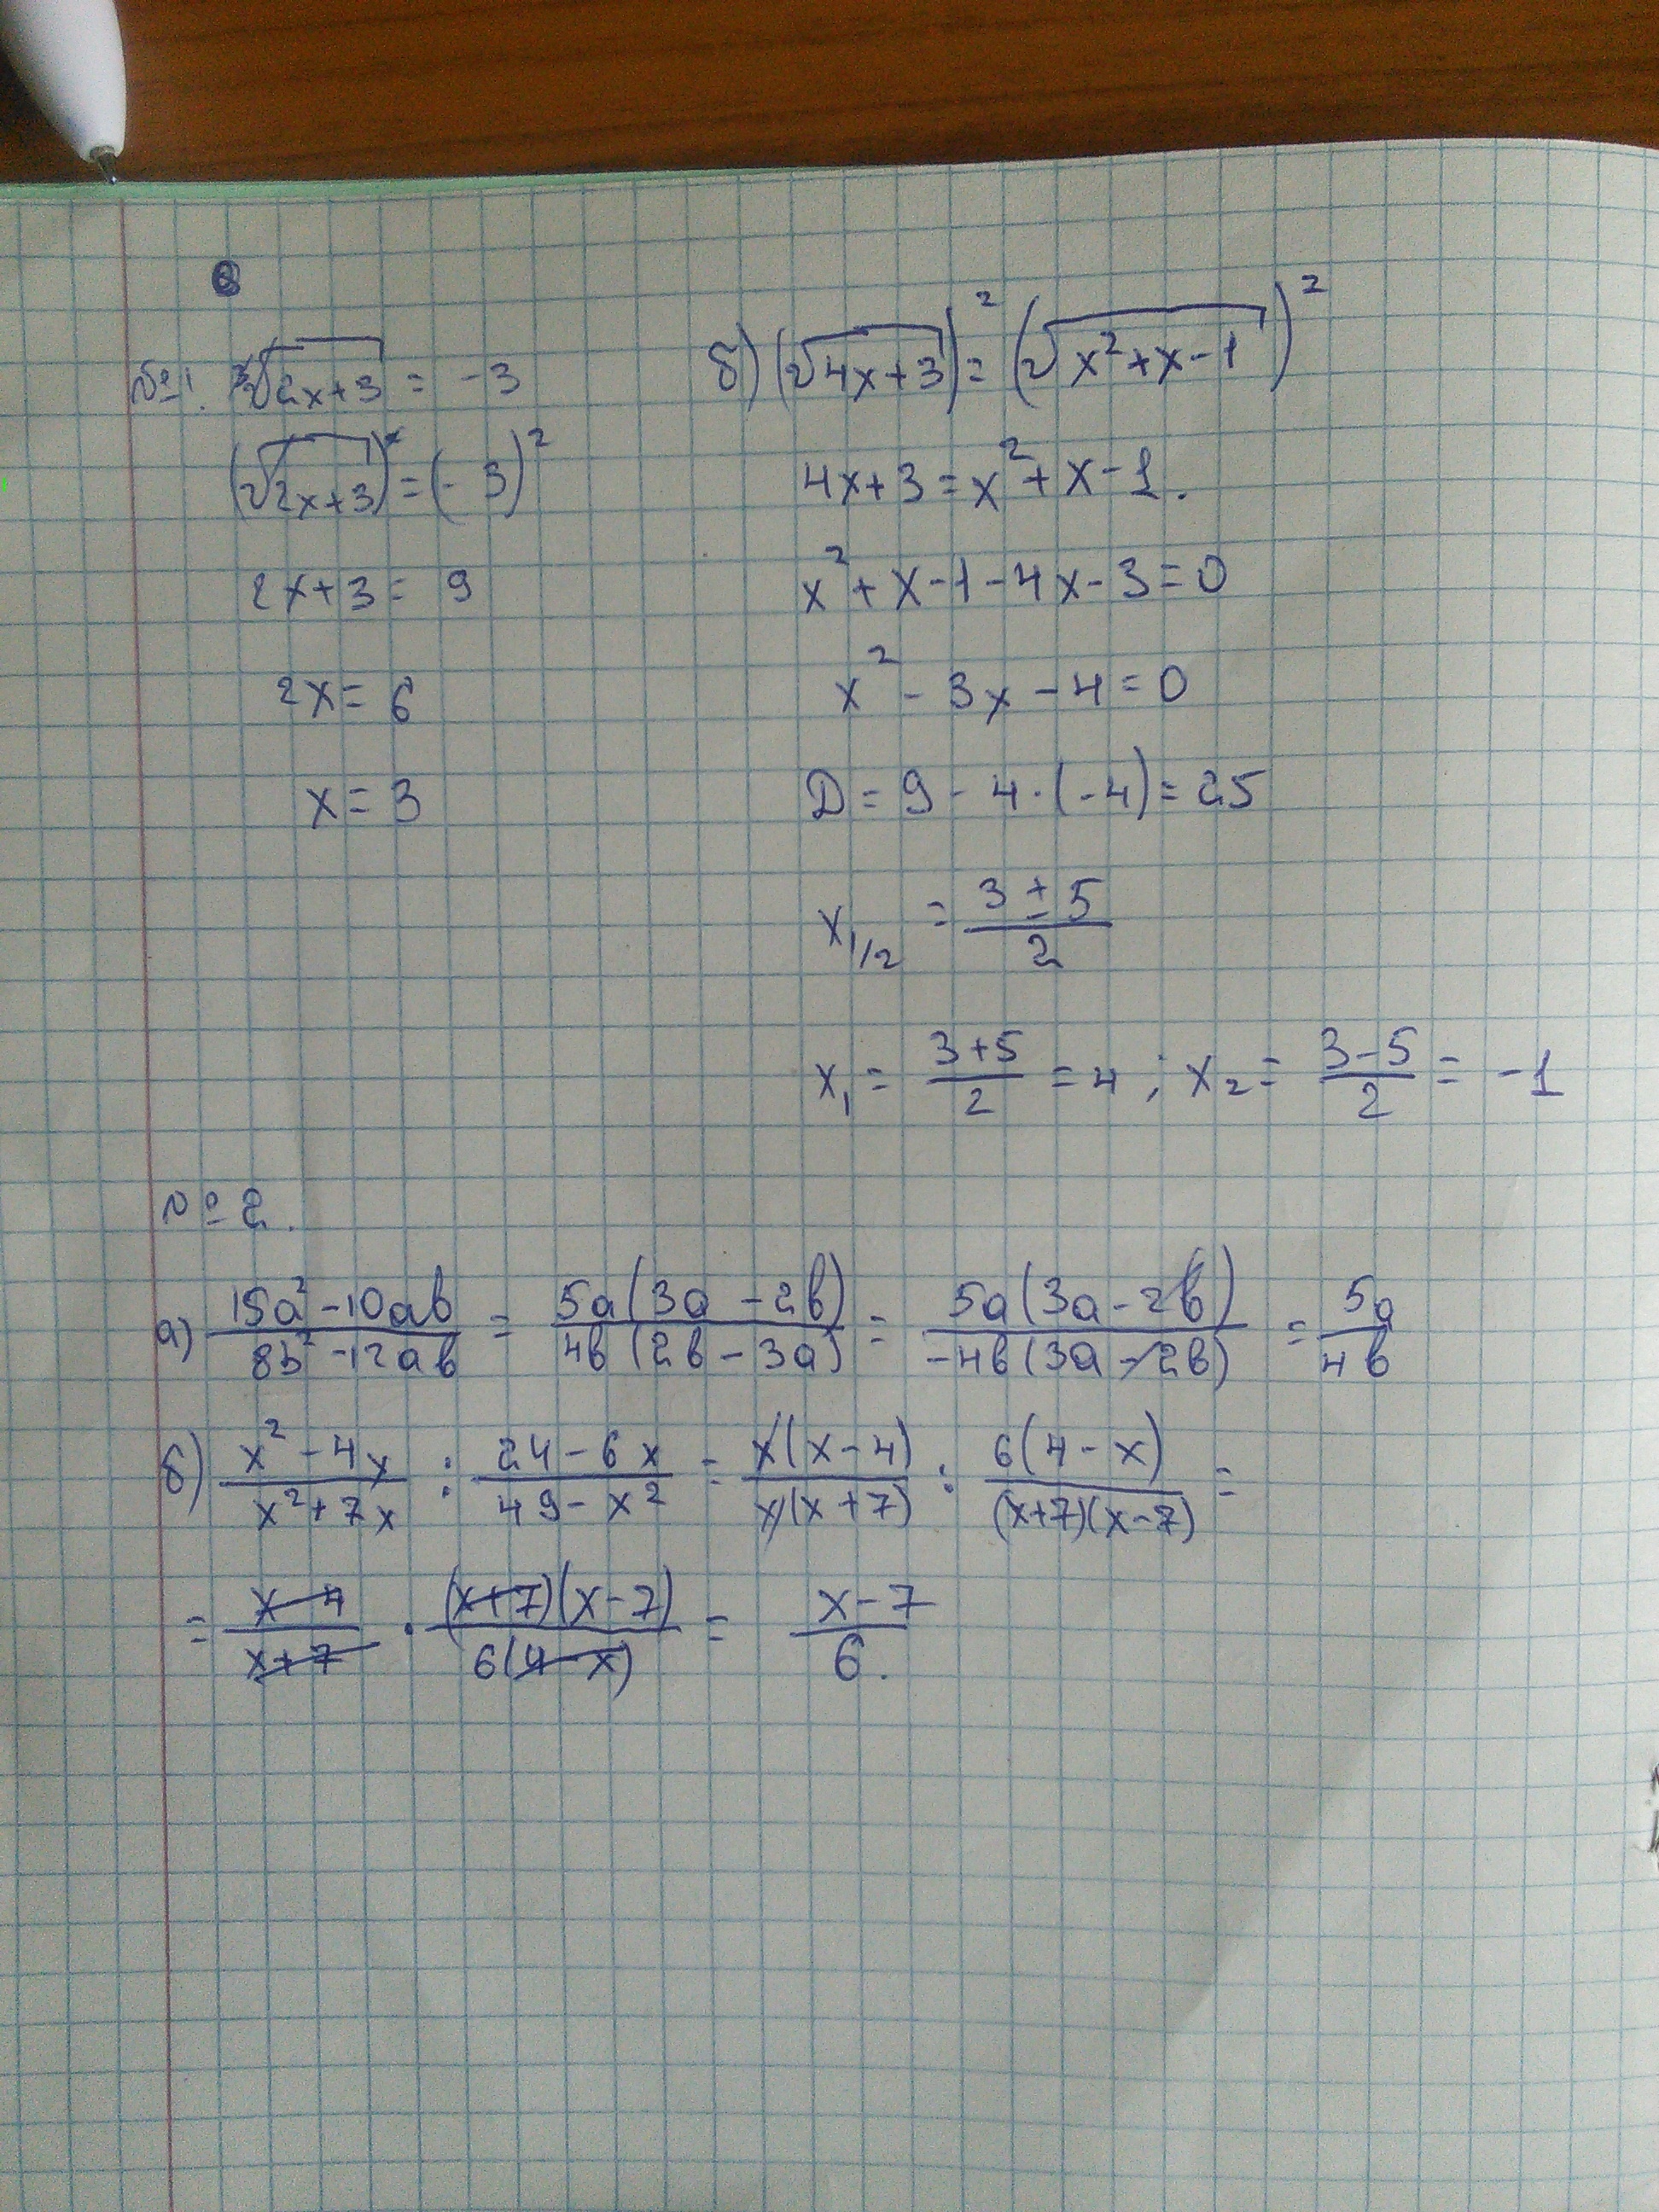 №1. ∛(2x+3) = -3
(√(2x+3))² = (-3)²
2x+3 = 9
2x = 6
x = 3
б) (√(4x+3))² = (√(x²+x-1))²
4x+3 = x²+x-1.
x²+x-1-4x-3=0
x²-3x-4=0
D = 9-4·(-4)=25
x₁/₂ = (3±5)/2
x₁ = (3+5)/2 = 4 ; x₂ = (3-5)/2 = -1
№2.
а) (15a²-10ab)/(8b²-12ab) = 5a(3a-2b)/4b(2b-3a) = 5a(3a-2b)/-4b(3a-2b) = 5a/4b
б) (x²-4x)/(x²+7x) : (24-6x)/(49-x²) = x(x-4)/x(x+7) : 6(4-x)/(x+7)(x-7) =
= (x-4)/(x+7) · (x+7)(x-7)/6(4-x) = (x-7)/6.